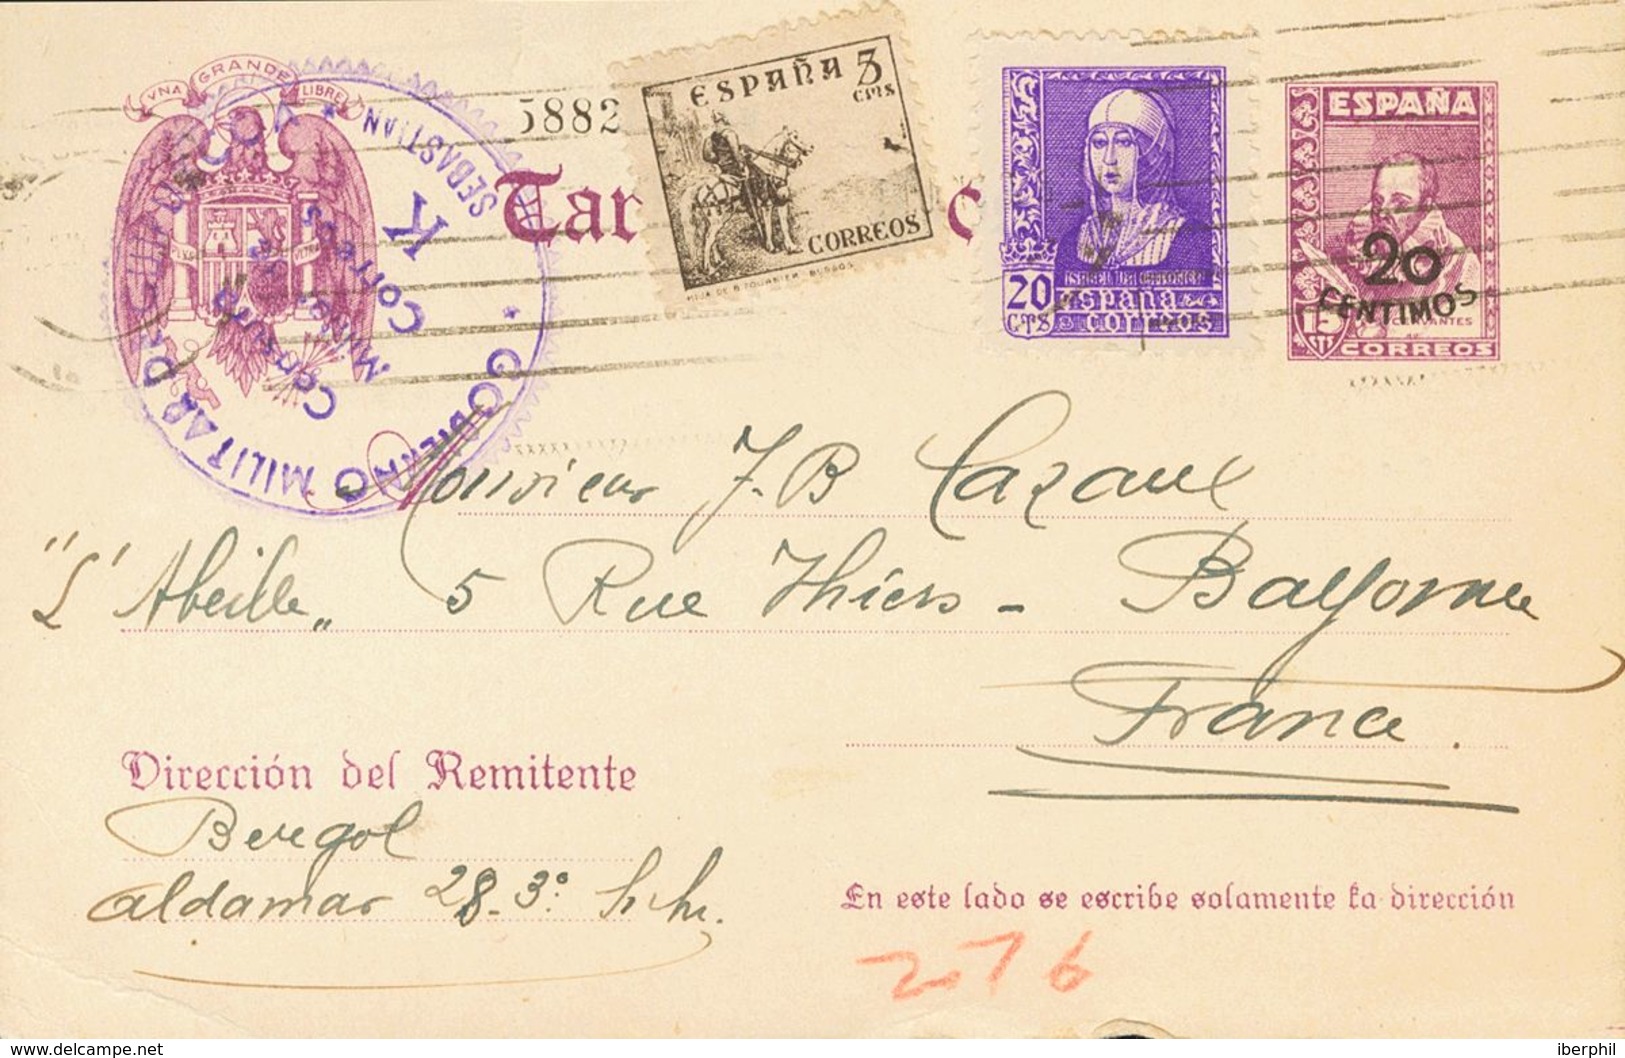 VNA GRANDE LIBRE
PLVS VLTRA
5882
ESPAÑA 5 CTMS
CORREOS
HIJA DE B. FOURNIER - BURGOS
20 CTS
ISABEL LA CATOLICA
España
Correos
ESPAÑA
20 CENTIMOS
15 CTS
CERVANTES
CORREOS
Tar
c
GOBIERNO MILITAR DE
SEBASTIAN
CENSURA
Militar
Correos
K
Monsieur J. B Cazaux
"L'Abeille" 5 Rue Thiers - Bayonne
France.
Dirección del Remitente
Bergol
Aldamar 28-3º
En este lado se escribe solamente la dirección
276
iberphil